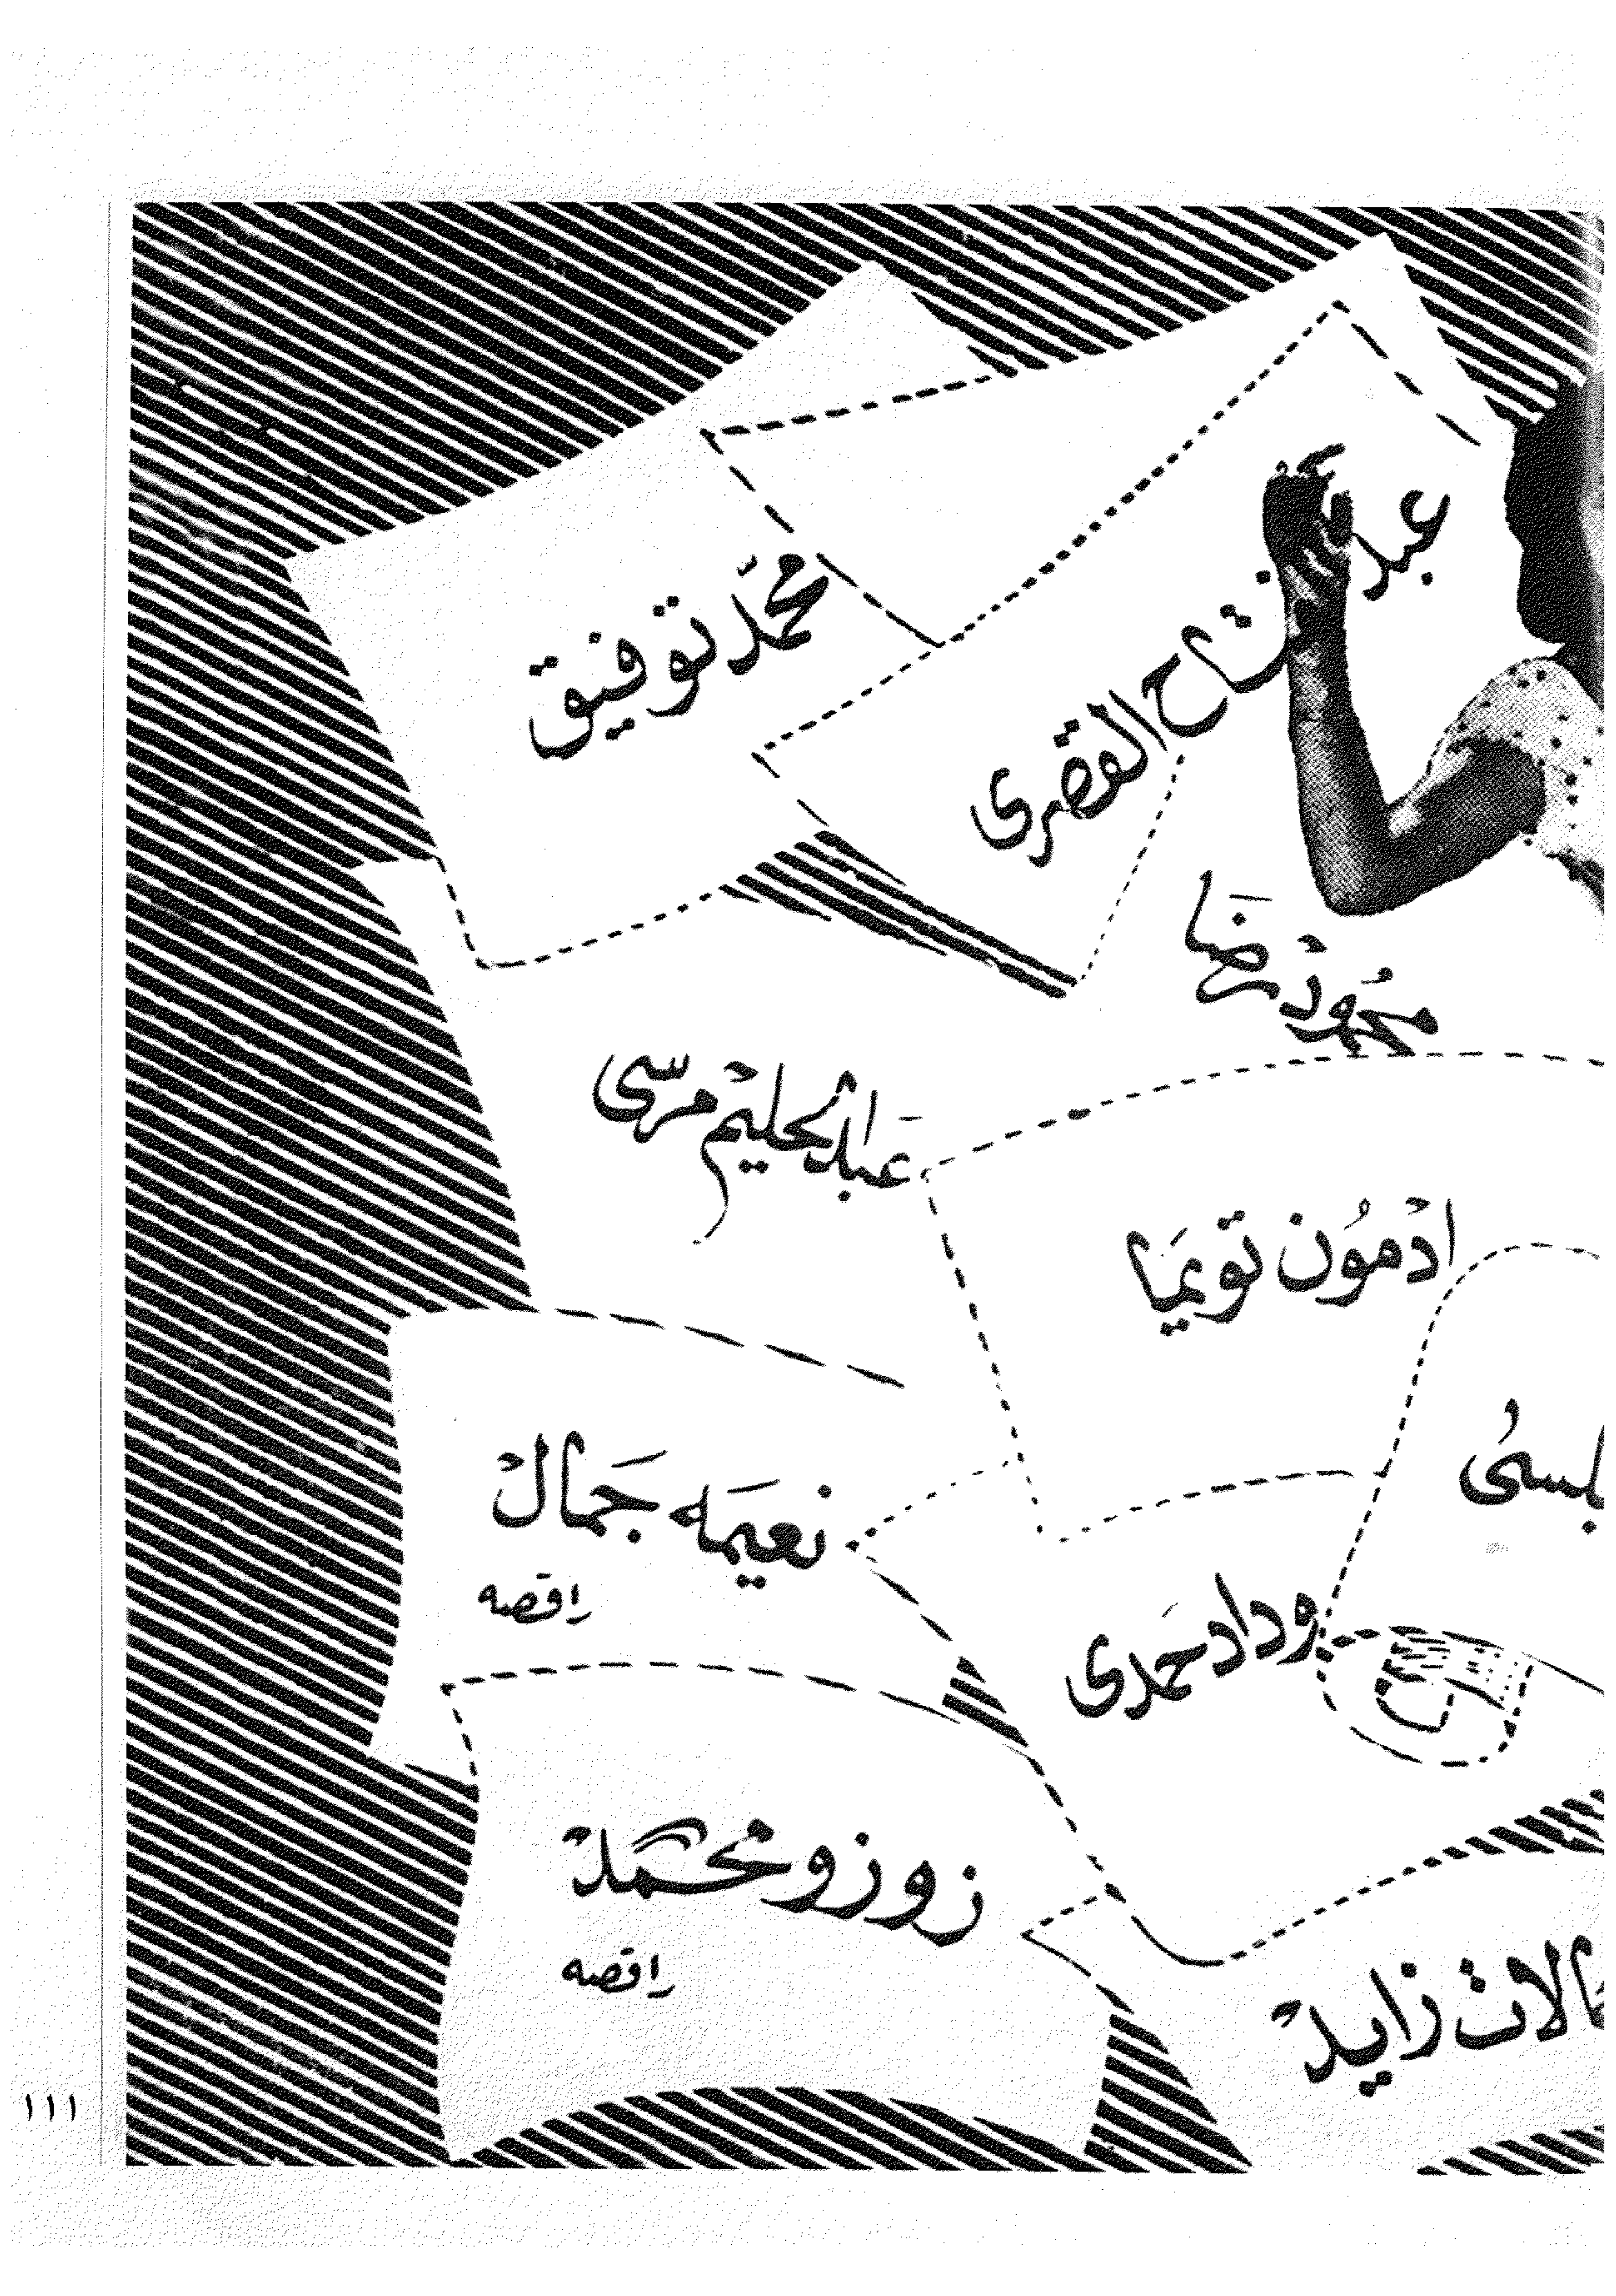 عبد الفتاح القصرى
محمد توفيق
محمود رضا
عبد الحليم مرسى
ادمون تويما
نعيمه جمال
راقصه
وداد حمدى
زوزو محمد
راقصه
زايد
١١١